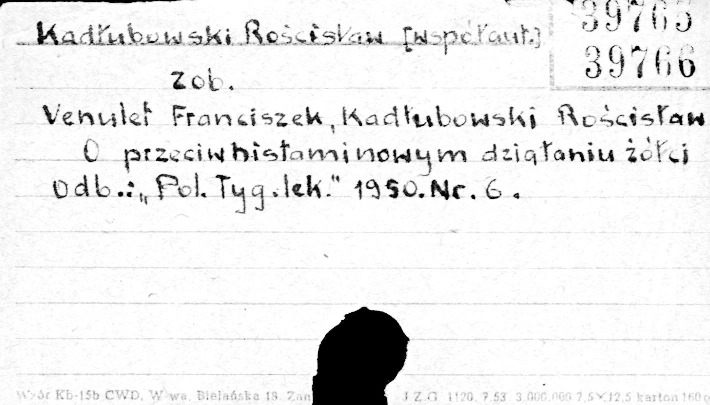 39765
39766
Kadłubowski Rościsław [współaut.]
zob.
Venulet Franciszek, Kadłubowski Rościsław
O przeciwhistaminowym działaniu żółci
Odb.: „Pol. Tyg. lek." 1950. Nr. 6.
Wzór Kb-15b CWD, W-wa, Bielańska 18. Zam J.Z.G. 1120. 7.53 3.000.000 7,5×12,5 karton 160g